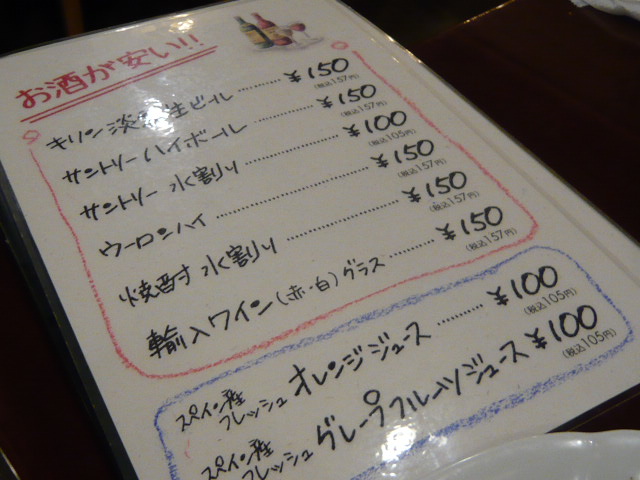 お酒が安い!!
キリン 淡麗 生ビール ………… ¥150 (税込157円)
サントリー ハイボール ………… ¥150 (税込157円)
サントリー 水割り ………… ¥100 (税込105円)
ウーロンハイ ………… ¥150 (税込157円)
焼酎 水割り ………… ¥150 (税込157円)
輸入ワイン(赤・白)グラス ……… ¥150 (税込157円)
スペイン産 フレッシュ オレンジジュース ……… ¥100 (税込105円)
スペイン産 フレッシュ グレープフルーツジュース ¥100 (税込105円)